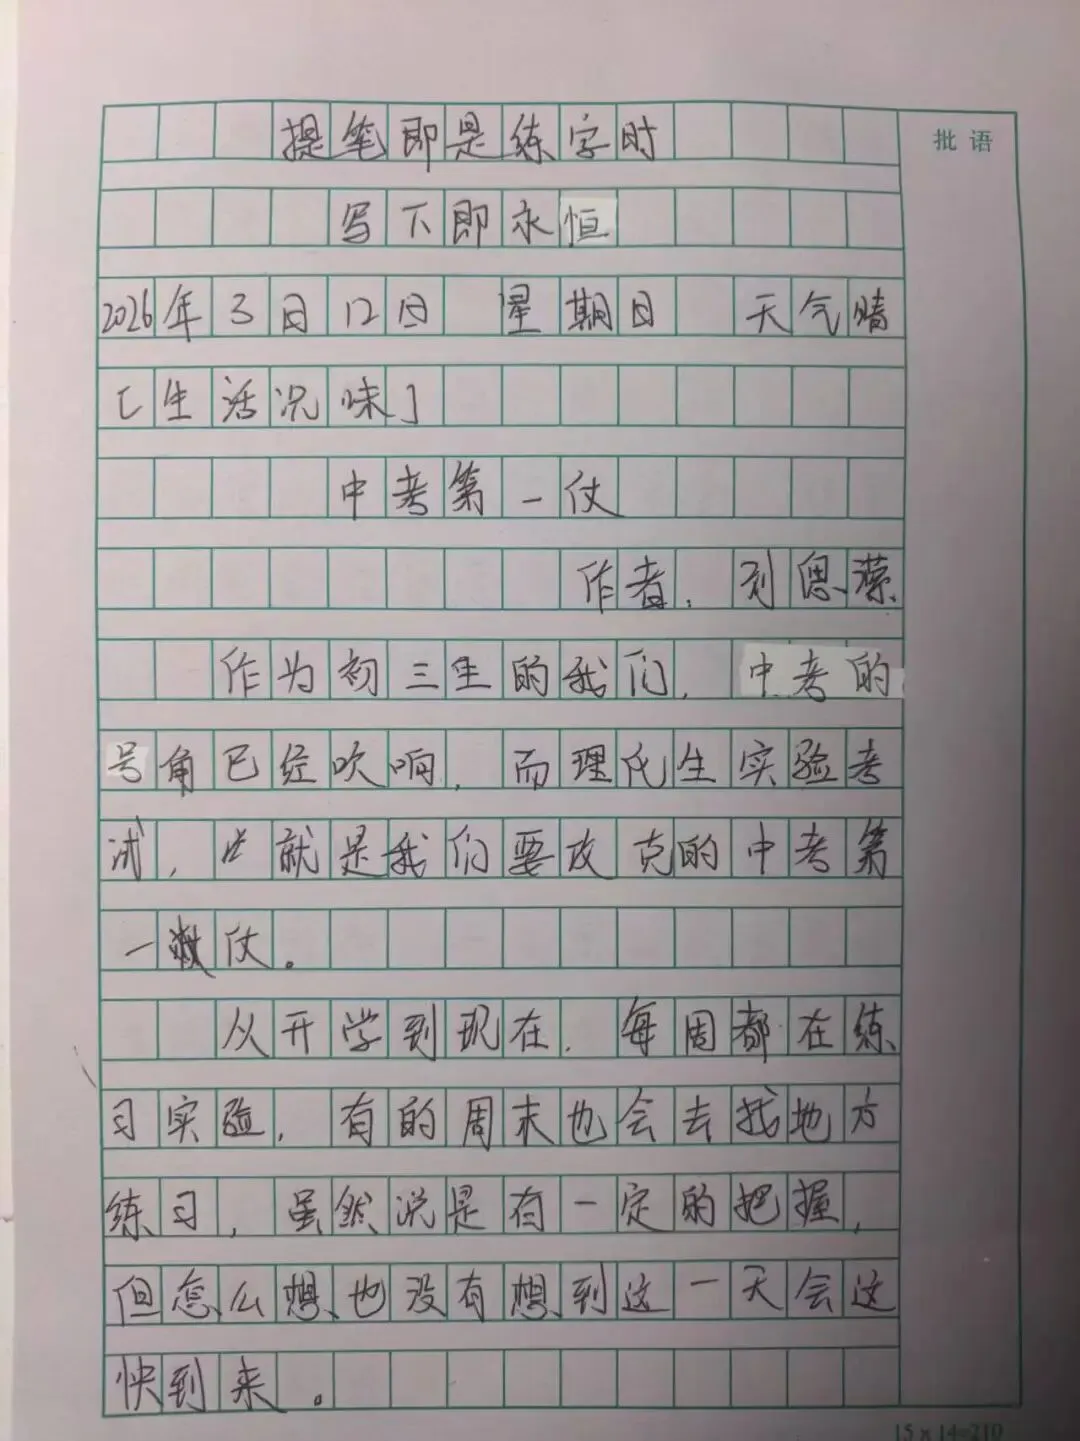 提笔即是练字时
批语
写下即永恒
2026年3日12日 星期日 天气晴
[生活况味]
中考第一仗
作者：刘思濛
作为初三生的我们，中考的
号角已经吹响，而理化生实验考
试，也就是我们要攻克的中考第
一仗。
从开学到现在，每周都在练
习实验，有的周末也会去找地方
练习，虽然说是有一定的把握，
但怎么想也没有想到这一天会这
快到来。
15×14=210